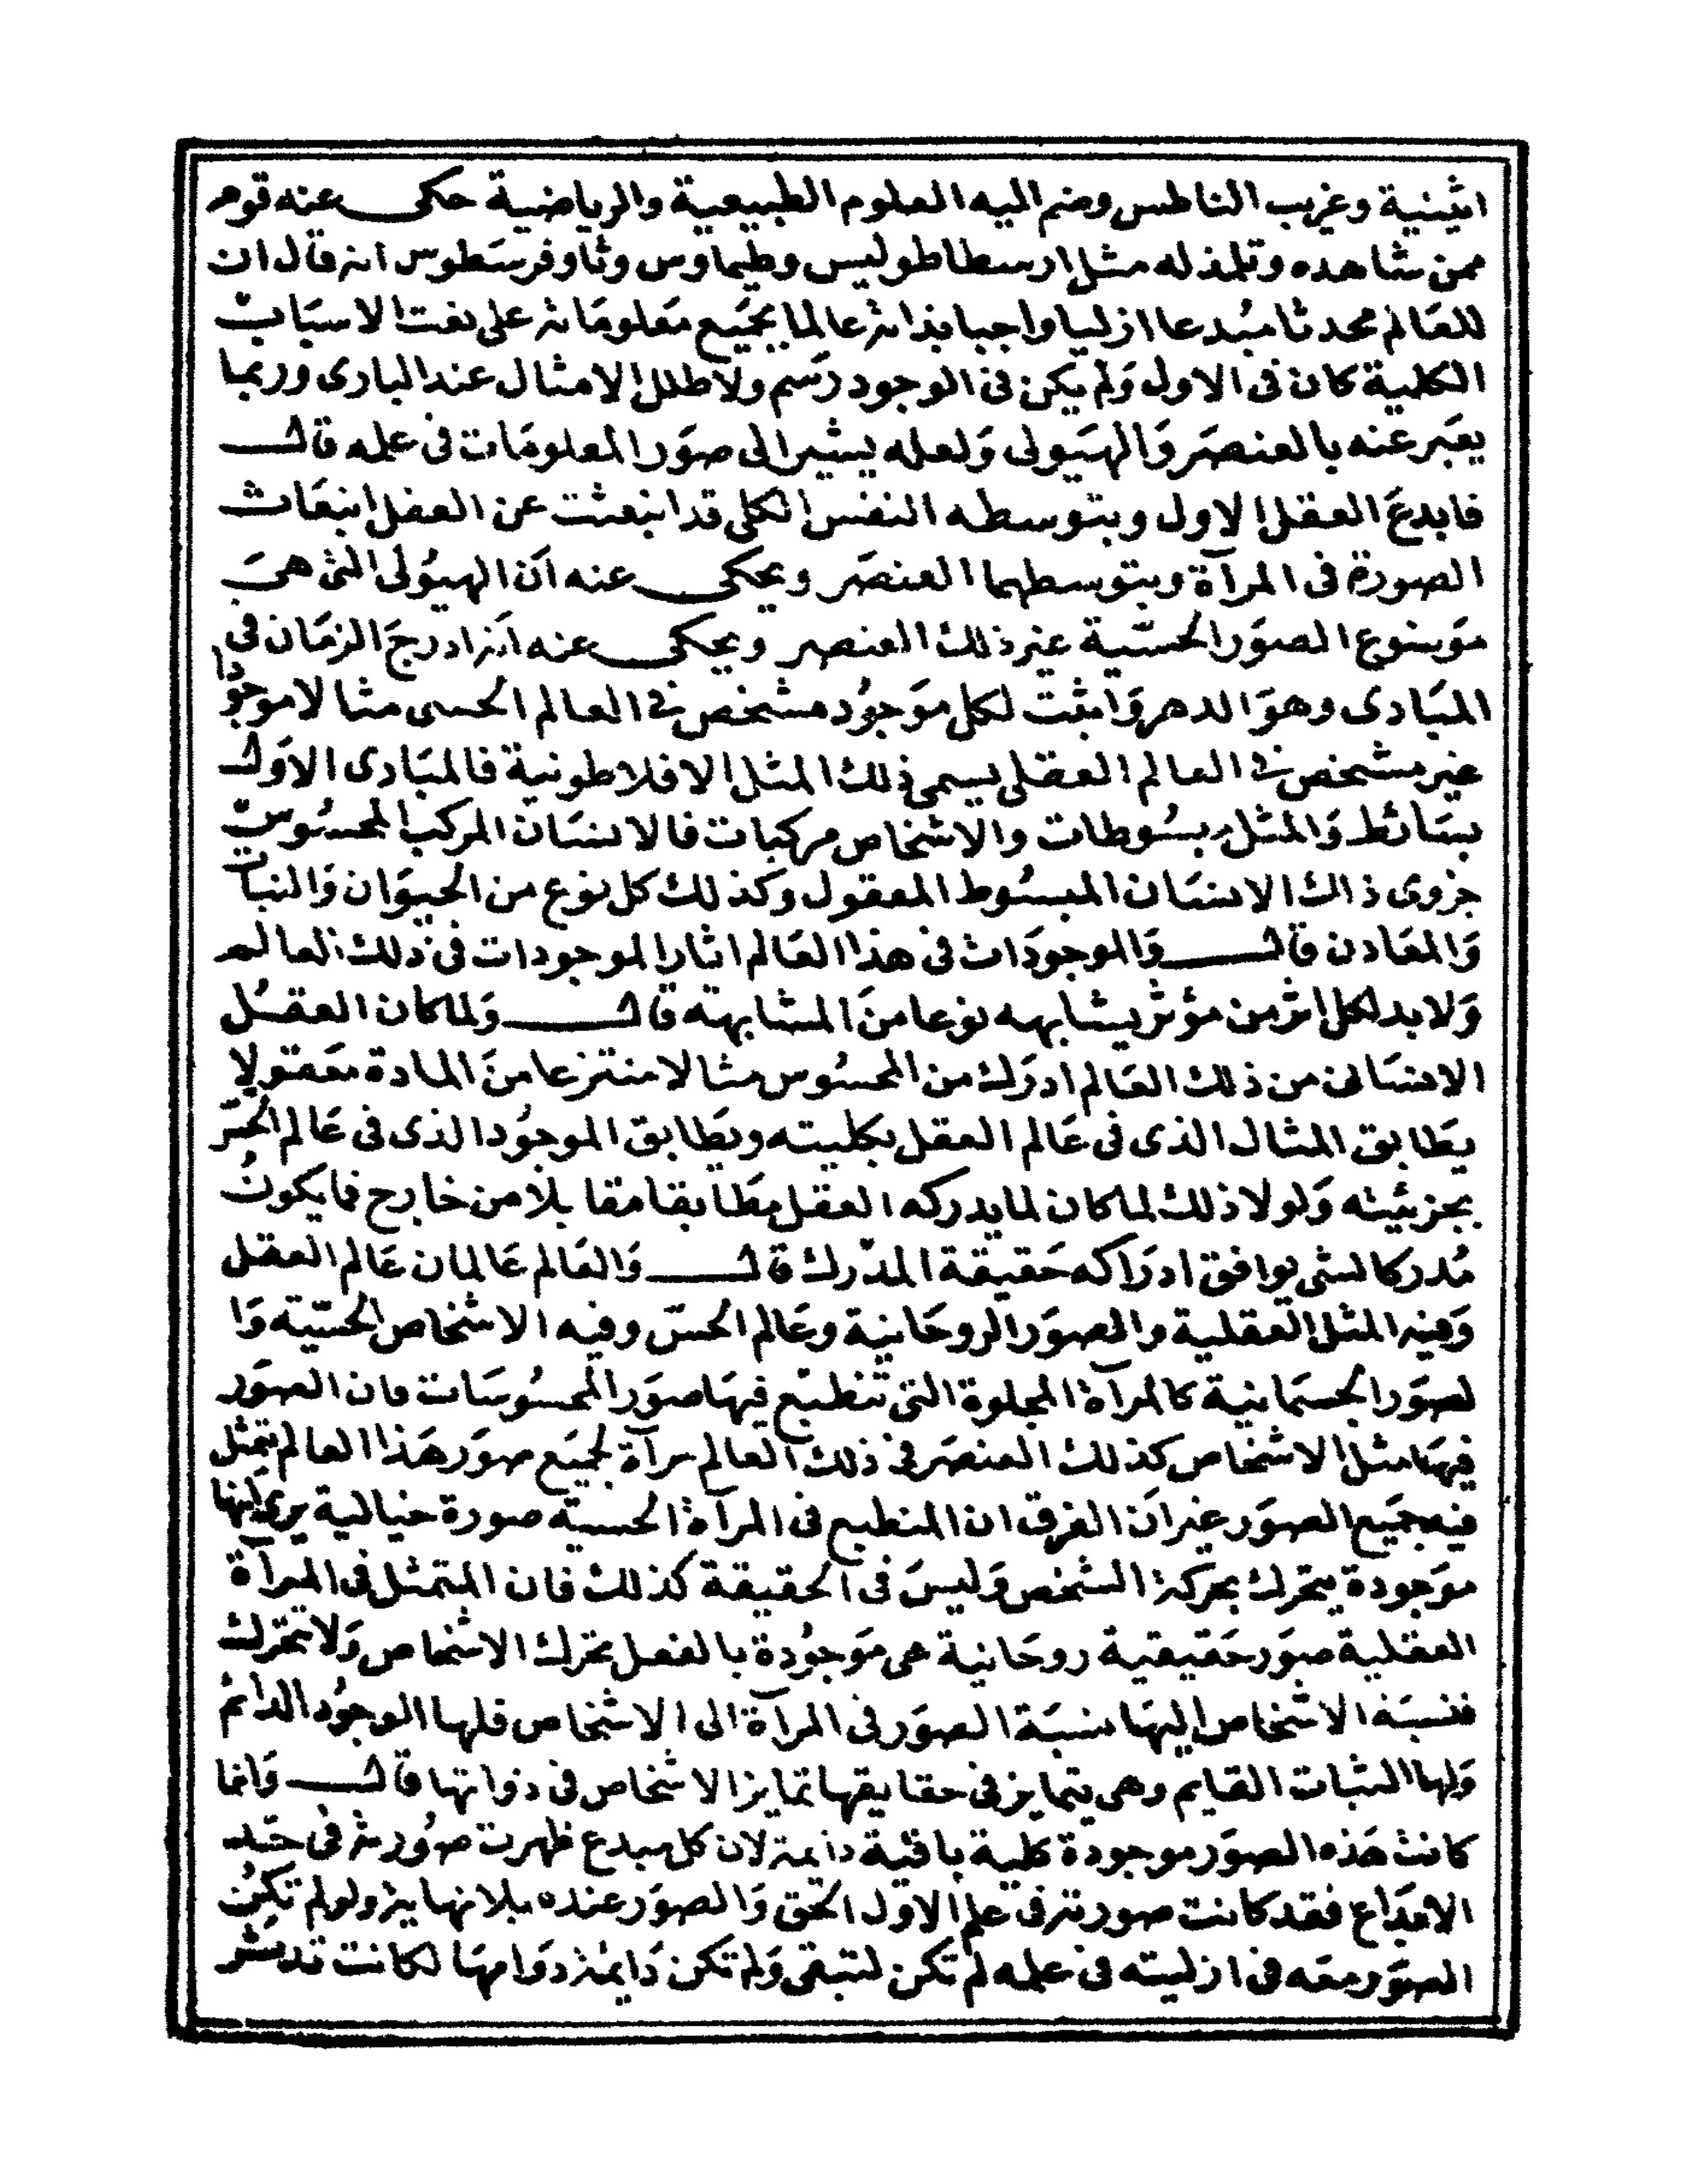 اثينية وغريب الناطس وضم اليه العلوم الطبيعية والرياضية حكى عنه قوم
ممن شاهده وتلمذ له مثل ارسطاطوليس وطيماوس وثاوفرسطوس انه قال ان
للعالم محدثا مبدعا ازليا واجبا بذاته عالما بجميع معلوماته على نعت الاسباب
الكلية كان فى الاول ولم يكن فى الوجود رسم ولا طلل الا مثال عند البارى وربما
يعبر عنه بالعنصر والهيولى ولعله يشير الى صور المعلومات فى علمه قال
فابدع العقل الاول وبتوسطه النفس الكلى قد انبعثت عن العقل انبعاث
الصورة فى المرآة وبتوسطهما العنصر ويحكى عنه ان الهيولى التى هى
موضوع الصور الحسية غير ذلك العنصر ويحكى عنه انه ادرج الزمان فى
المبادى وهو الدهر واثبت لكل موجود مشخص فى العالم الحسى مثالا موجودا
غير مشخص فى العالم العقلى يسمى ذلك المثل الافلاطونية فالمبادى الاول
بسائط والمثل مبسوطات والاشخاص مركبات فالانسان المركب المحسوس
جزوى ذاك الانسان المبسوط المعقول وكذلك كل نوع من الحيوان والنبات
والمعادن قال والموجودات فى هذا العالم اثار الموجودات فى ذلك العالم
ولا بد لكل اثر من مؤثر يشابهه نوعا من المشابهة قال ولما كان العقل
الانسانى من ذلك العالم ادرك من المحسوس مثالا منتزعا من المادة معقولا
يطابق المثال الذى فى عالم العقل بكليته ويطابق الموجود الذى فى عالم الحس
بجزئيته ولولا ذلك لما كان لما يدركه العقل مطابقا مقابلا من خارج فما يكون
مدركا لشى يوافق ادراكه حقيقة المدرك قال والعالم عالمان عالم العقل
وفيه المثل العقلية والصور الروحانية وعالم الحس وفيه الاشخاص الحسية وا
لصور الجسمانية كالمرآة المجلوة التى تنطبع فيها صور المحسوسات فان الصور
فيها مثل الاشخاص كذلك العنصر فى ذلك العالم مرآة لجميع صور هذا العالم يتمثل
فيه جميع الصور غير ان الفرق ان المنطبع فى المرآة الحسية صورة خيالية يرى انها
موجودة يتحرك بحركة الشخص وليس فى الحقيقة كذلك فان المتمثل فى المرآة
العقلية صور حقيقية روحانية هى موجودة بالفعل تحرك الاشخاص ولا تتحرك
فنسبة الاشخاص اليها نسبة الصور فى المرآة الى الاشخاص فلها الوجود الدائم
ولها الثبات القايم وهى يتمايز فى حقايقها تمايز الاشخاص فى ذواتها قال وانما
كانت هذه الصور موجودة كلية باقية دايمة لان كل مبدع ظهرت صورته فى حد
الابداع فقد كانت صورته فى علم الاول الحق والصور عنده بلا نهاية ولو لم تكن
الصور معه فى ازليته فى علمه لم تكن لتبقى ولم تكن دايمة دوامها لكانت تدثر